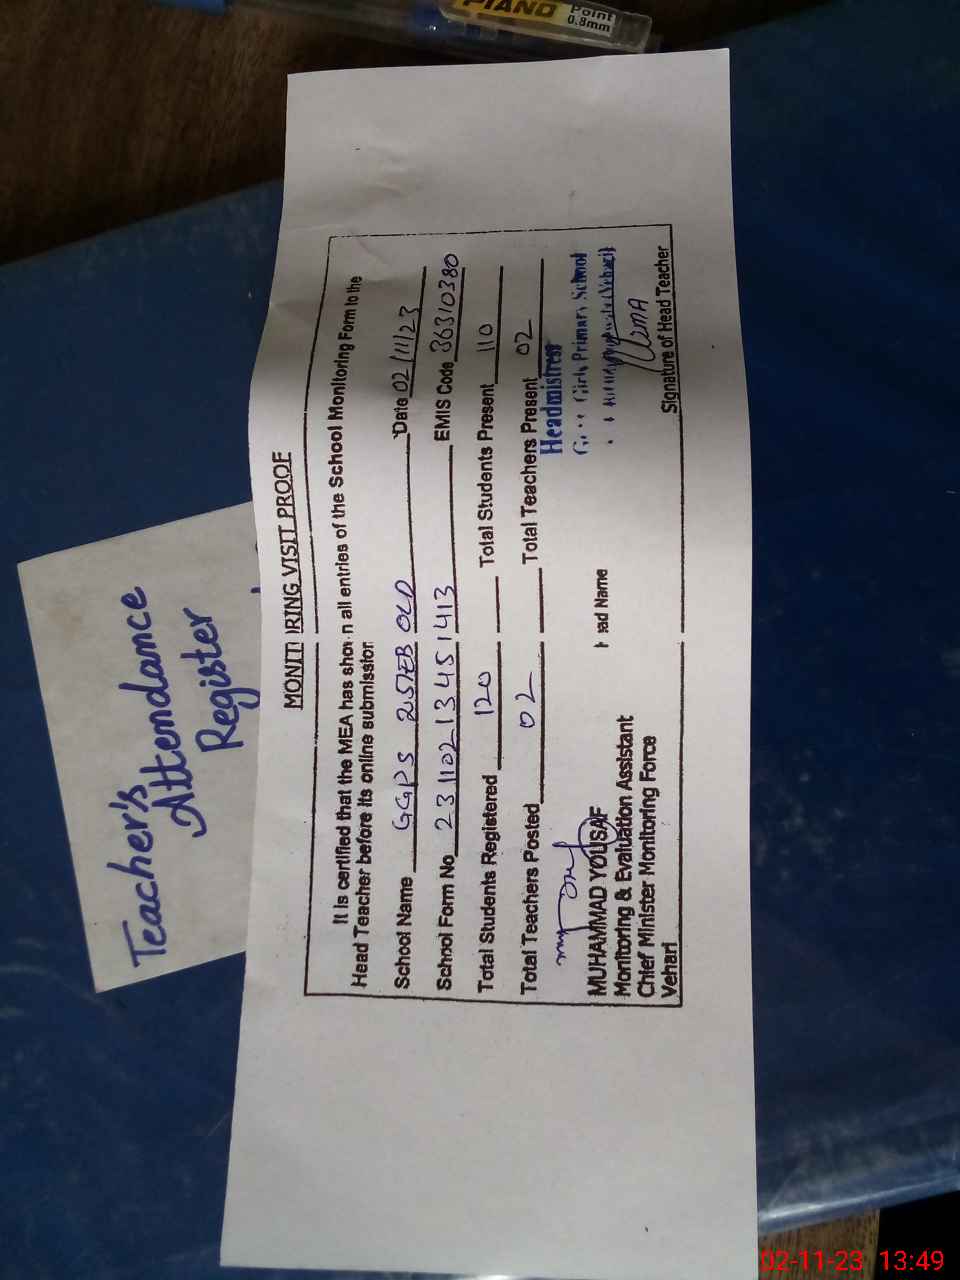 PIANO Point
0.8mm
Teacher's
Attendance
Register
MONIT RING VISIT PROOF
It is certified that the MEA has shown all entries of the School Monitoring Form to the
Head Teacher before its online submission
School Name GGPS 257EB OLD Date 02/11/23
School Form No 23110213451413 EMIS Code 36310380
Total Students Registered 120 Total Students Present 110
Total Teachers Posted 02 Total Teachers Present 02
Headmistress
Girls Primary School
(Vehari)
MUHAMMAD YOUSAF ead Name
Monitoring & Evaluation Assistant
Chief Minister Monitoring Force
Vehari Signature of Head Teacher
02-11-23 13:49